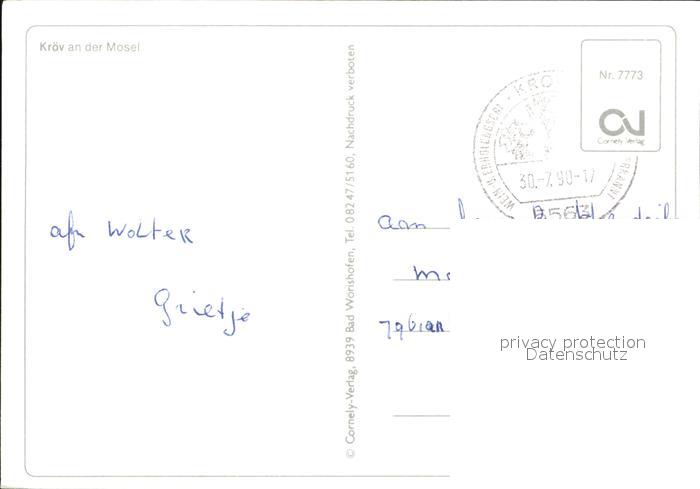 Kröv an der Mosel
© Cornely-Verlag, 8939 Bad Wörishofen, Tel. 08247/5160, Nachdruck verboten
Nr. 7773
Cornely-Verlag
KRÖ
WEIN-U.ERHOLUNGSORT
30.-7.90-17
afz WOLTER
Grietje
aan
privacy protection
Datenschutz